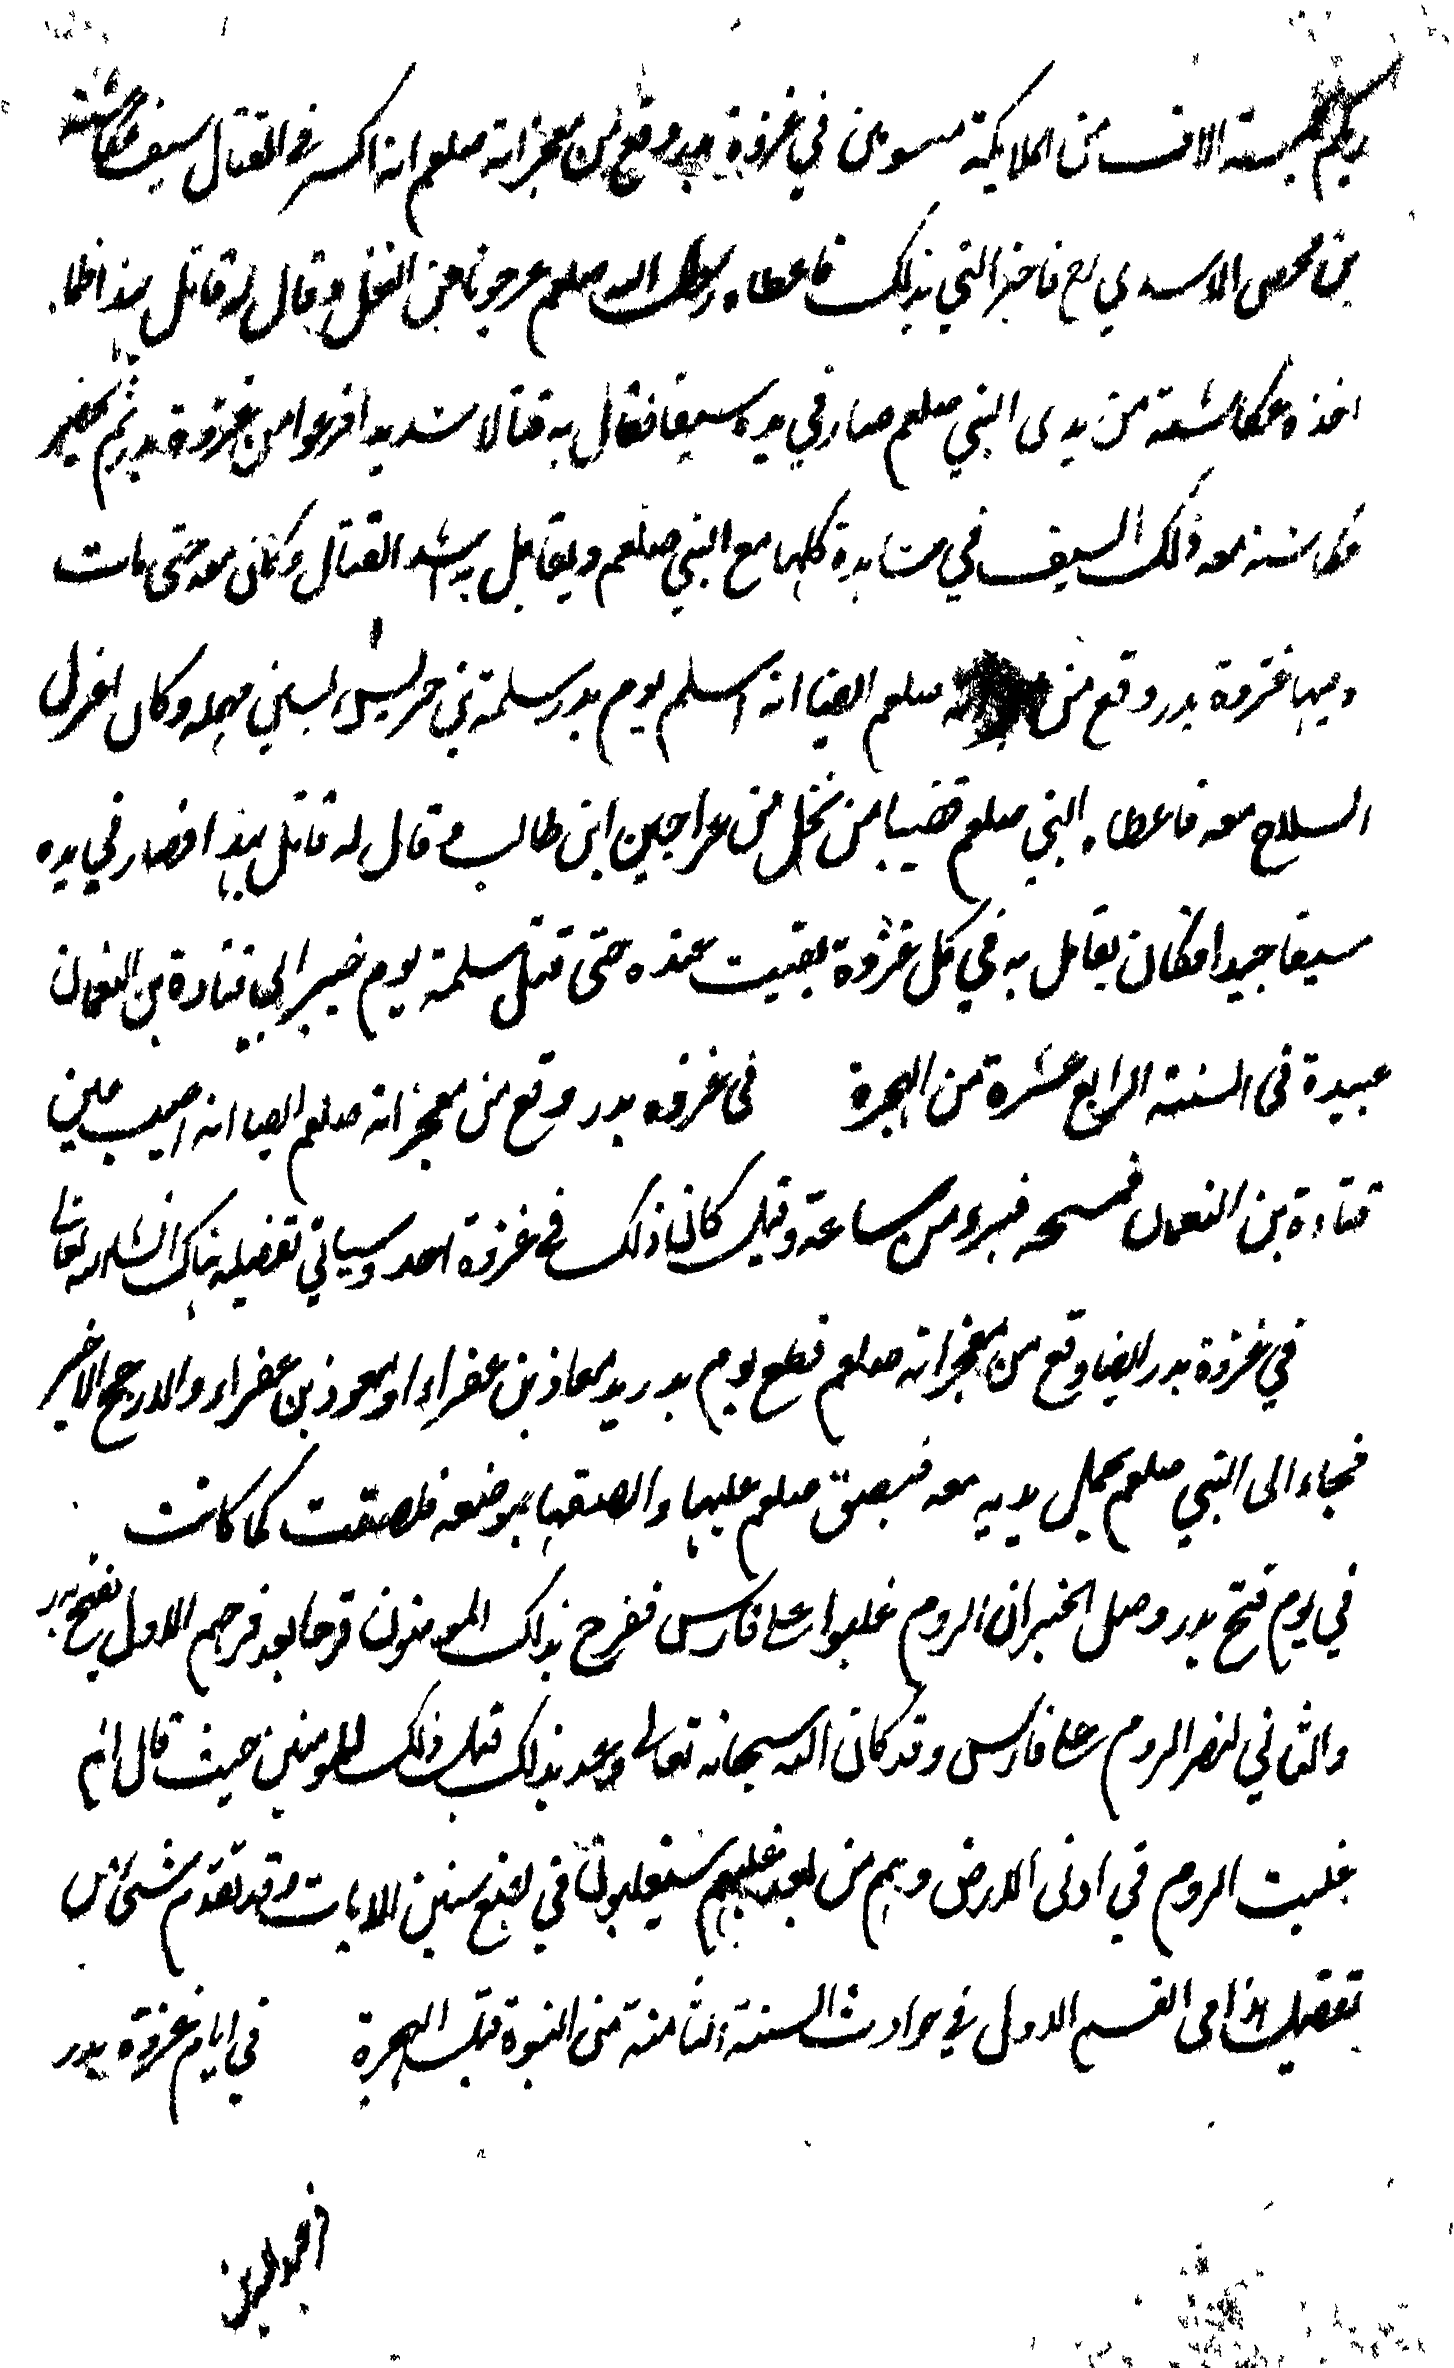 ربكم بخمسة الاف من الملايكة مسومين في غزوة بدر وقع من معجزاته صلعم انه انكسر في القتال سيف عكاشة
بن محصن الاسدي رع فاخبر النبي بذلك فاعطاه رسول الله صلعم عرجونا من النخل وقال له قاتل بهذا فلما
اخذه عكاشة من يدى النبي صلعم صار في يده سيفا فقاتل به قتالا شديدا فرغوا من غزوة بدر ثم يحضر
عكاشة معه ذلك السيف في مشاهده كلها مع النبي صلعم ويقاتل به اشد القتال وكان معه حتى مات
وفيها غزوة بدر وقع من صلعم ايضا انه اسلم يوم بدر سلمة بن حريس بسين مهمله وكان اعزل
السلاح معه فاعطاه النبي صلعم قضيبا من نخل من عراجين ابن طالب وقال له قاتل بهذا فصار في يده
سيفا جيدا فكان يقاتل به في كل غزوة بقيت عنده حتى قتل سلمة يوم خيبر ابي قتادة بن النعمان
عبيدة فى السنة الرابع عشرة من الهجرة في غزوه بدر وقع من معجزاته صلعم ايضا انه اصيب عين
قتادة بن النعمان فمسحه فبرء من ساعة وقيل كان ذلك في غزوة احد وسياتي تفصيله هناك انشاء الله تعالى
في غزوة بدر ايضا وقع من معجزاته صلعم قطع يوم بدر يد معاذ بن عفراء او معوذ بن عفراء والارجح الاخير
فجاء الى النبي صلعم يحمل يديه معه فبصق صلعم عليها والصقها بموضعه فلصقت كما كانت
في يوم فتح بدر وصل الخبر ان الروم غلبوا على فارس ففرح بذلك المومنون فرحا بعد فرحهم الاول بفتح بدر
والثاني لنصر الروم على فارس وقد كان الله سبحانه تعالى وعد بذلك قبل ذلك للمومنين حيث قال الم
غلبت الروم في ادنى الارض وهم من بعد غلبهم سيغلبون في بضع سنين الايات وقد تقدم شئ من
تفصيل هذا فى القسم الاول في حوادث السنة الثامنة من النبوة قبل الهجرة في ايام غزوة بدر